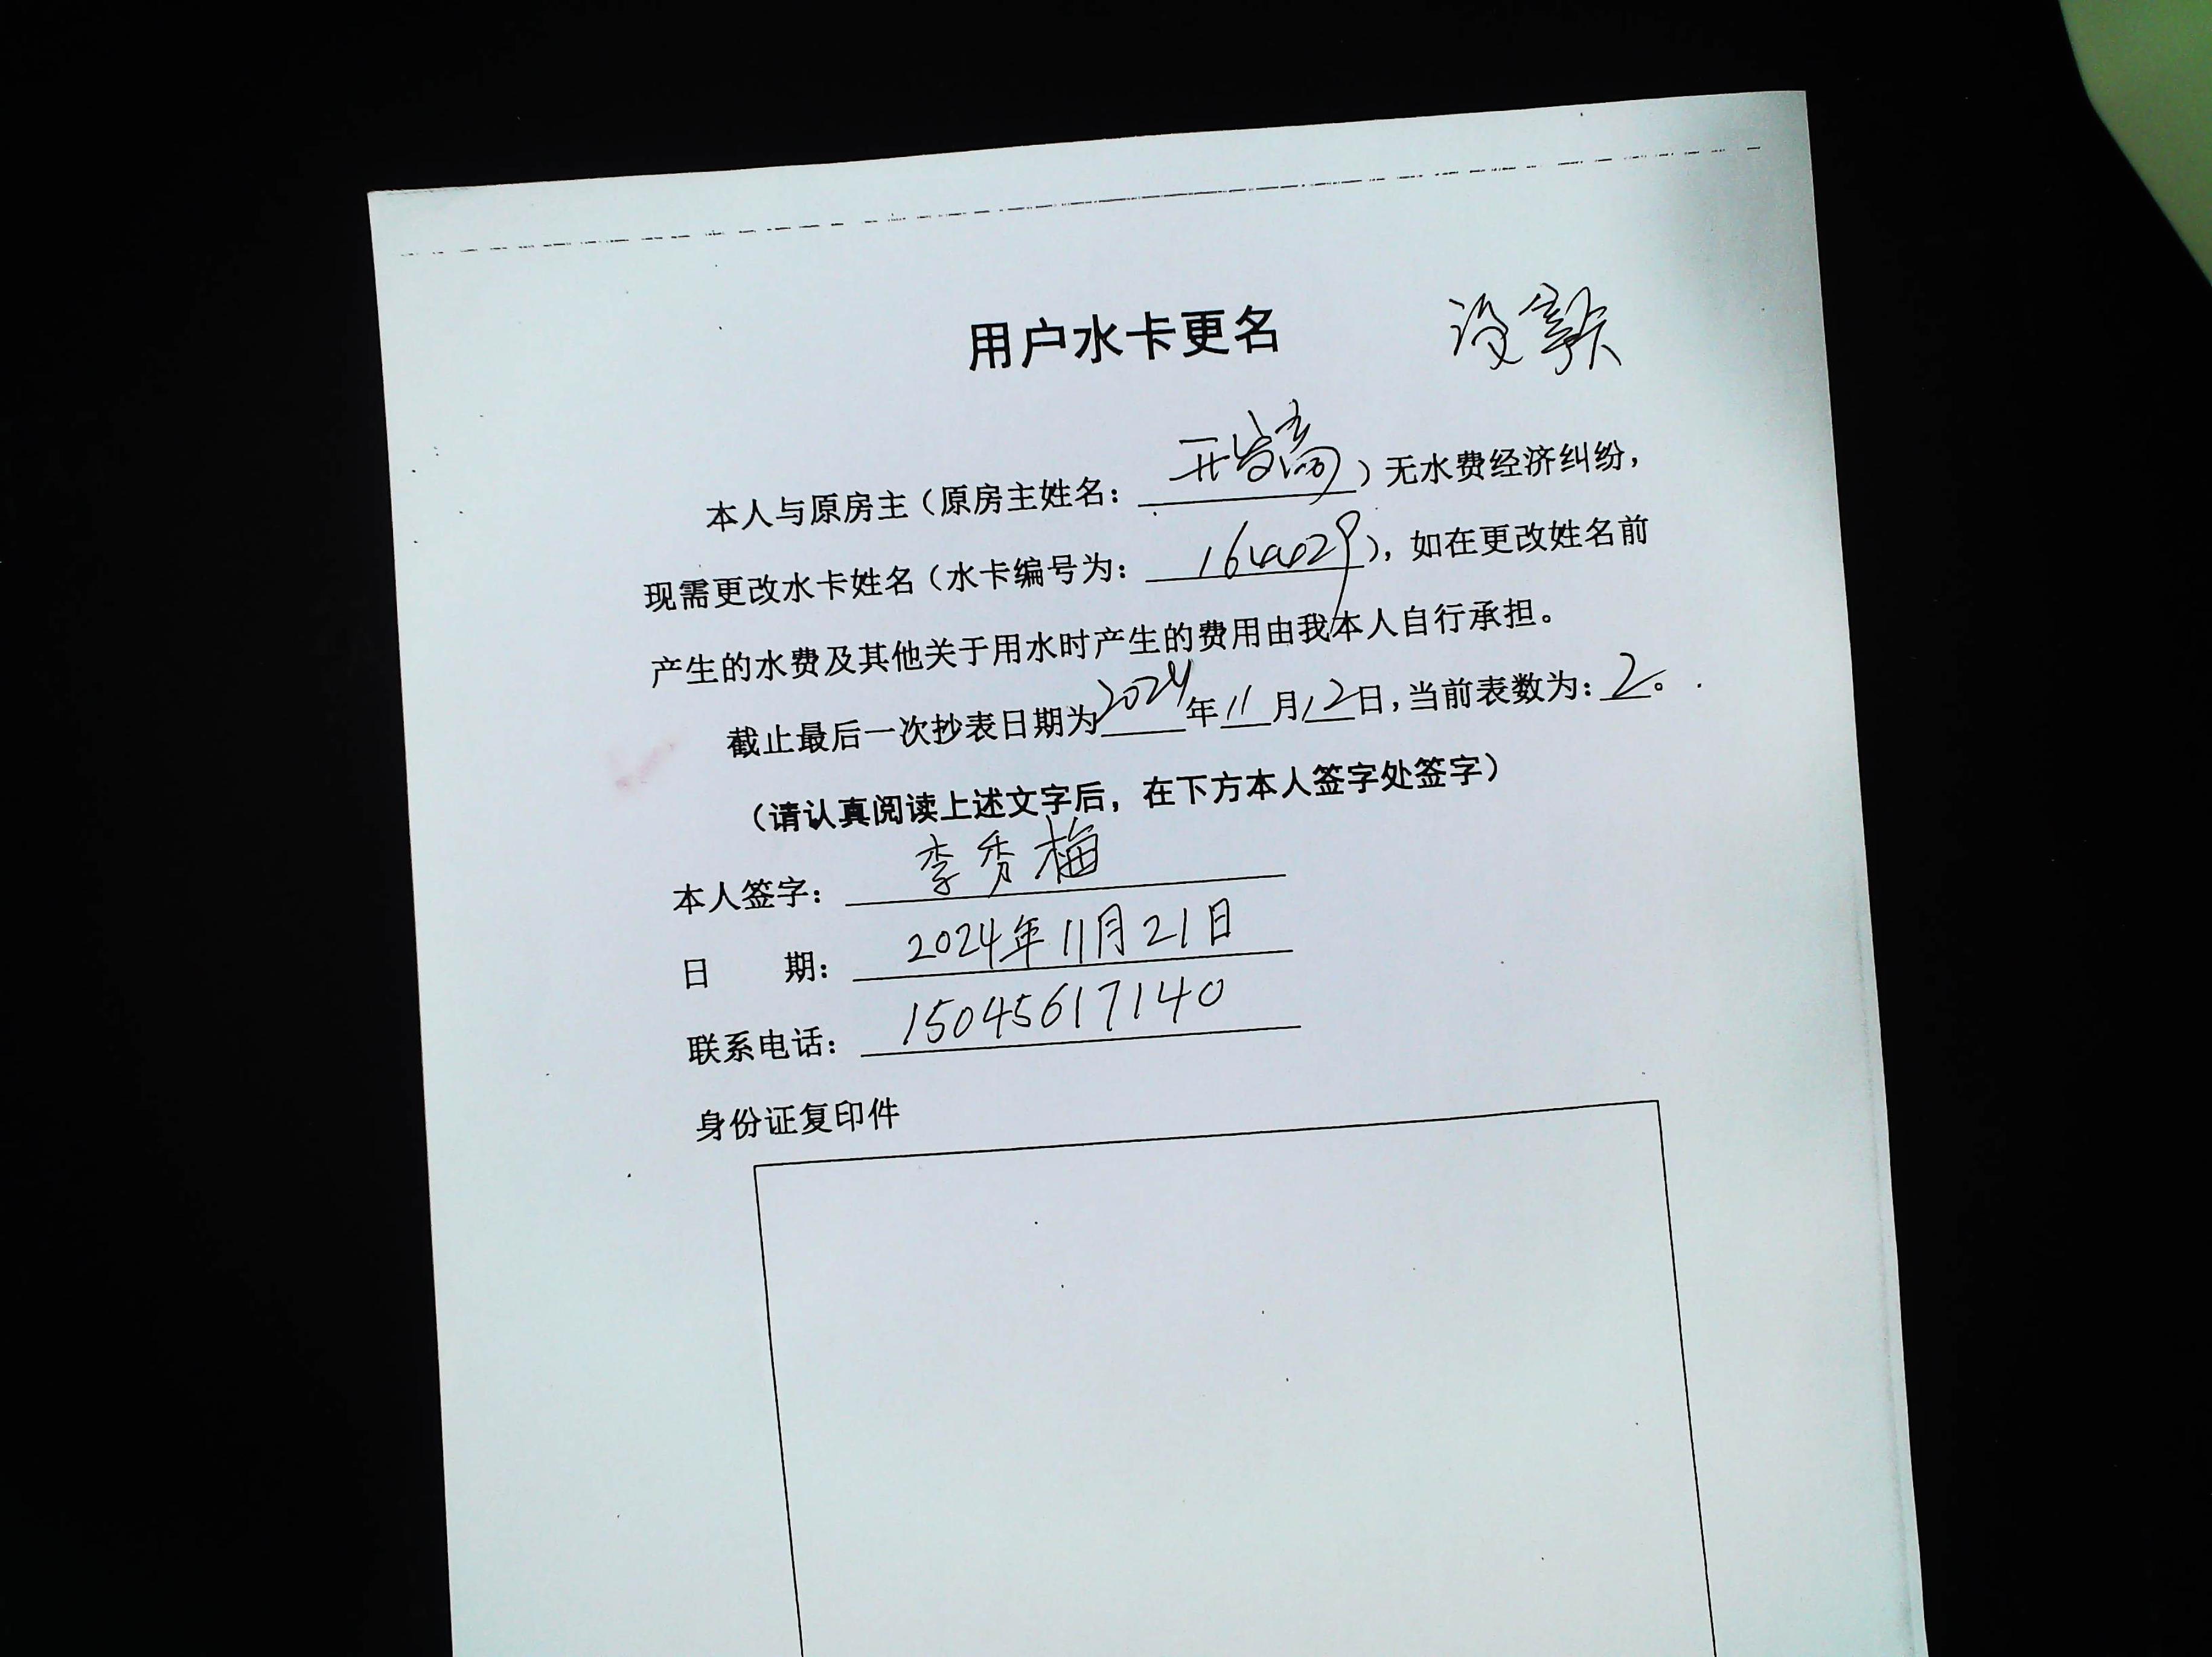 用户水卡更名
没拿卡
本人与原房主（原房主姓名：开发商）无水费经济纠纷，
现需更改水卡姓名（水卡编号为：），如在更改姓名前
产生的水费及其他关于用水时产生的费用由我本人自行承担。
截止最后一次抄表日期为2024年11月12日，当前表数为：2。
（请认真阅读上述文字后，在下方本人签字处签字）
本人签字：李秀梅
日 期：2024年11月21日
联系电话：15045617140
身份证复印件